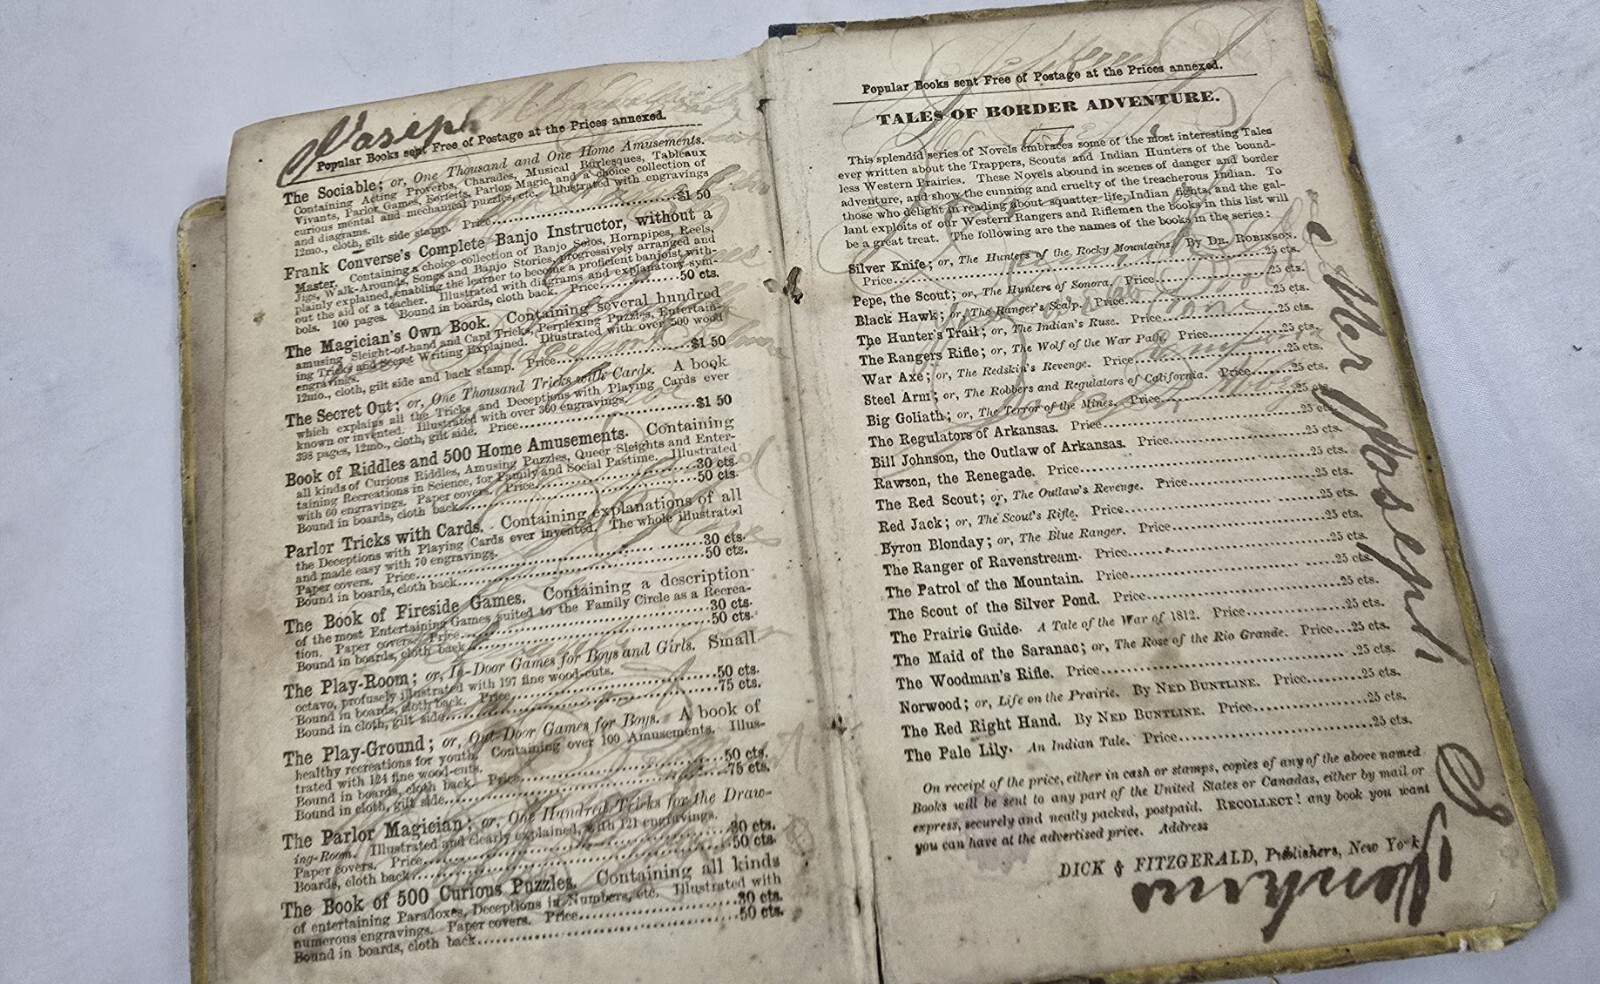 Joseph
Popular Books sent Free of Postage at the Prices annexed.
The Sociable; or, One Thousand and One Home Amusements.
Containing Acting Proverbs, Charades, Musical Burlesques, Tableaux
Vivants, Parlor Games, Forfeits, Parlor Magic, and a choice collection of
curious mental and mechanical puzzles, etc. Illustrated with engravings
and diagrams.
12mo., cloth, gilt side stamp. Price......$1 50
Frank Converse's Complete Banjo Instructor, without a
Master. Containing a choice collection of Banjo Solos, Hornpipes, Reels,
Jigs, Walk-Arounds, Songs and Banjo Stories, progressively arranged and
plainly explained, enabling the learner to become a proficient banjoist with-
out the aid of a teacher. Illustrated with diagrams and explanatory sym-
bols. 100 pages. Bound in boards, cloth back. Price......50 cts.
The Magician's Own Book. Containing several hundred
amusing Sleight-of-hand and Card Tricks, Perplexing Puzzles, Entertain-
ing Tricks and Secret Writing Explained. Illustrated with over 500 wood
engravings.
12mo., cloth, gilt side and back stamp. Price......$1 50
The Secret Out; or, One Thousand Tricks with Cards. A book
which explains all the Tricks and Deceptions with Playing Cards ever
known or invented. Illustrated with over 300 engravings.
398 pages, 12mo., cloth, gilt side. Price......$1 50
Book of Riddles and 500 Home Amusements. Containing
all kinds of Curious Riddles, Amusing Puzzles, Queer Sleights and Enter-
taining Recreations in Science, for Family and Social Pastime. Illustrated
with 60 engravings. Paper covers. Price......30 cts.
Bound in boards, cloth back......50 cts.
Parlor Tricks with Cards. Containing explanations of all
the Deceptions with Playing Cards ever invented. The whole illustrated
and made easy with 70 engravings.
Paper covers. Price......30 cts.
Bound in boards, cloth back......50 cts.
The Book of Fireside Games. Containing a description
of the most Entertaining Games suited to the Family Circle as a Recrea-
tion. Paper covers. Price......30 cts.
Bound in boards, cloth back......50 cts.
The Play-Room; or, In-Door Games for Boys and Girls. Small
octavo, profusely illustrated with 197 fine wood-cuts.
Bound in boards, cloth back. Price......50 cts.
Bound in cloth, gilt side......75 cts.
The Play-Ground; or, Out-Door Games for Boys. A book of
healthy recreations for youth. Containing over 100 Amusements. Illus-
trated with 124 fine wood-cuts.
Bound in boards, cloth back. Price......50 cts.
Bound in cloth, gilt side......75 cts.
The Parlor Magician; or, One Hundred Tricks for the Draw-
ing-Room. Illustrated and clearly explained, with 121 engravings.
Paper covers. Price......30 cts.
Boards, cloth back......50 cts.
The Book of 500 Curious Puzzles. Containing all kinds
of entertaining Paradoxes, Deceptions in Numbers, etc. Illustrated with
numerous engravings. Paper covers. Price......30 cts.
Bound in boards, cloth back......50 cts.
Popular Books sent Free of Postage at the Prices annexed.
TALES OF BORDER ADVENTURE.
This splendid series of Novels embraces some of the most interesting Tales
ever written about the Trappers, Scouts and Indian Hunters of the bound-
less Western Prairies. These Novels abound in scenes of danger and border
adventure, and show the cunning and cruelty of the treacherous Indian. To
those who delight in reading about squatter life, Indian fights, and the gal-
lant exploits of our Western Rangers and Riflemen the books in this list will
be a great treat. The following are the names of the books in the series:
Silver Knife; or, The Hunters of the Rocky Mountains. By DR. ROBINSON.
Price......25 cts.
Pepe, the Scout; or, The Hunters of Sonora. Price......25 cts.
Black Hawk; or, The Ranger's Scalp. Price......25 cts.
The Hunter's Trail; or, The Indian's Ruse. Price......25 cts.
The Rangers Rifle; or, The Wolf of the War Path. Price......25 cts.
War Axe; or, The Redskin's Revenge. Price......25 cts.
Steel Arm; or, The Robbers and Regulators of California. Price......25 cts.
Big Goliath; or, The Terror of the Mines. Price......25 cts.
The Regulators of Arkansas. Price......25 cts.
Bill Johnson, the Outlaw of Arkansas. Price......25 cts.
Rawson, the Renegade. Price......25 cts.
The Red Scout; or, The Outlaw's Revenge. Price......25 cts.
Red Jack; or, The Scout's Rifle. Price......25 cts.
Byron Blonday; or, The Blue Ranger. Price......25 cts.
The Ranger of Ravenstream. Price......25 cts.
The Patrol of the Mountain. Price......25 cts.
The Scout of the Silver Pond. Price......25 cts.
The Prairie Guide. A Tale of the War of 1812. Price......25 cts.
The Maid of the Saranac; or, The Rose of the Rio Grande. Price...25 cts.
The Woodman's Rifle. Price......25 cts.
Norwood; or, Life on the Prairie. By NED BUNTLINE. Price......25 cts.
The Red Right Hand. By NED BUNTLINE. Price......25 cts.
The Pale Lily. An Indian Tale. Price......25 cts.
On receipt of the price, either in cash or stamps, copies of any of the above named
Books will be sent to any part of the United States or Canadas, either by mail or
express, securely and neatly packed, postpaid. RECOLLECT! any book you want
you can have at the advertised price. Address
DICK & FITZGERALD, Publishers, New York
Mr Joseph
Jenkins